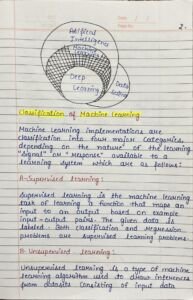 Date
Page No.
2.
Artificial
Intelligence
Machine
Learning
Deep
Learning
Data
Science
Classification of Machine Learning
Machine Learning implementations are
classified into four major categories,
depending on the nature of the learning
"signal" or "response" available to a
learning system which are as follows:
A. Supervised learning:
Supervised learning is the machine learning
task of learning a function that maps an
input to an output based on example
input-output pairs. The given data is
labeled. Both classification and Regression
problems are supervised learning problems.
B. Unsupervised learning:
Unsupervised learning is a type of machine
learning algorithm used to draw inferences
from datasets consisting of input data